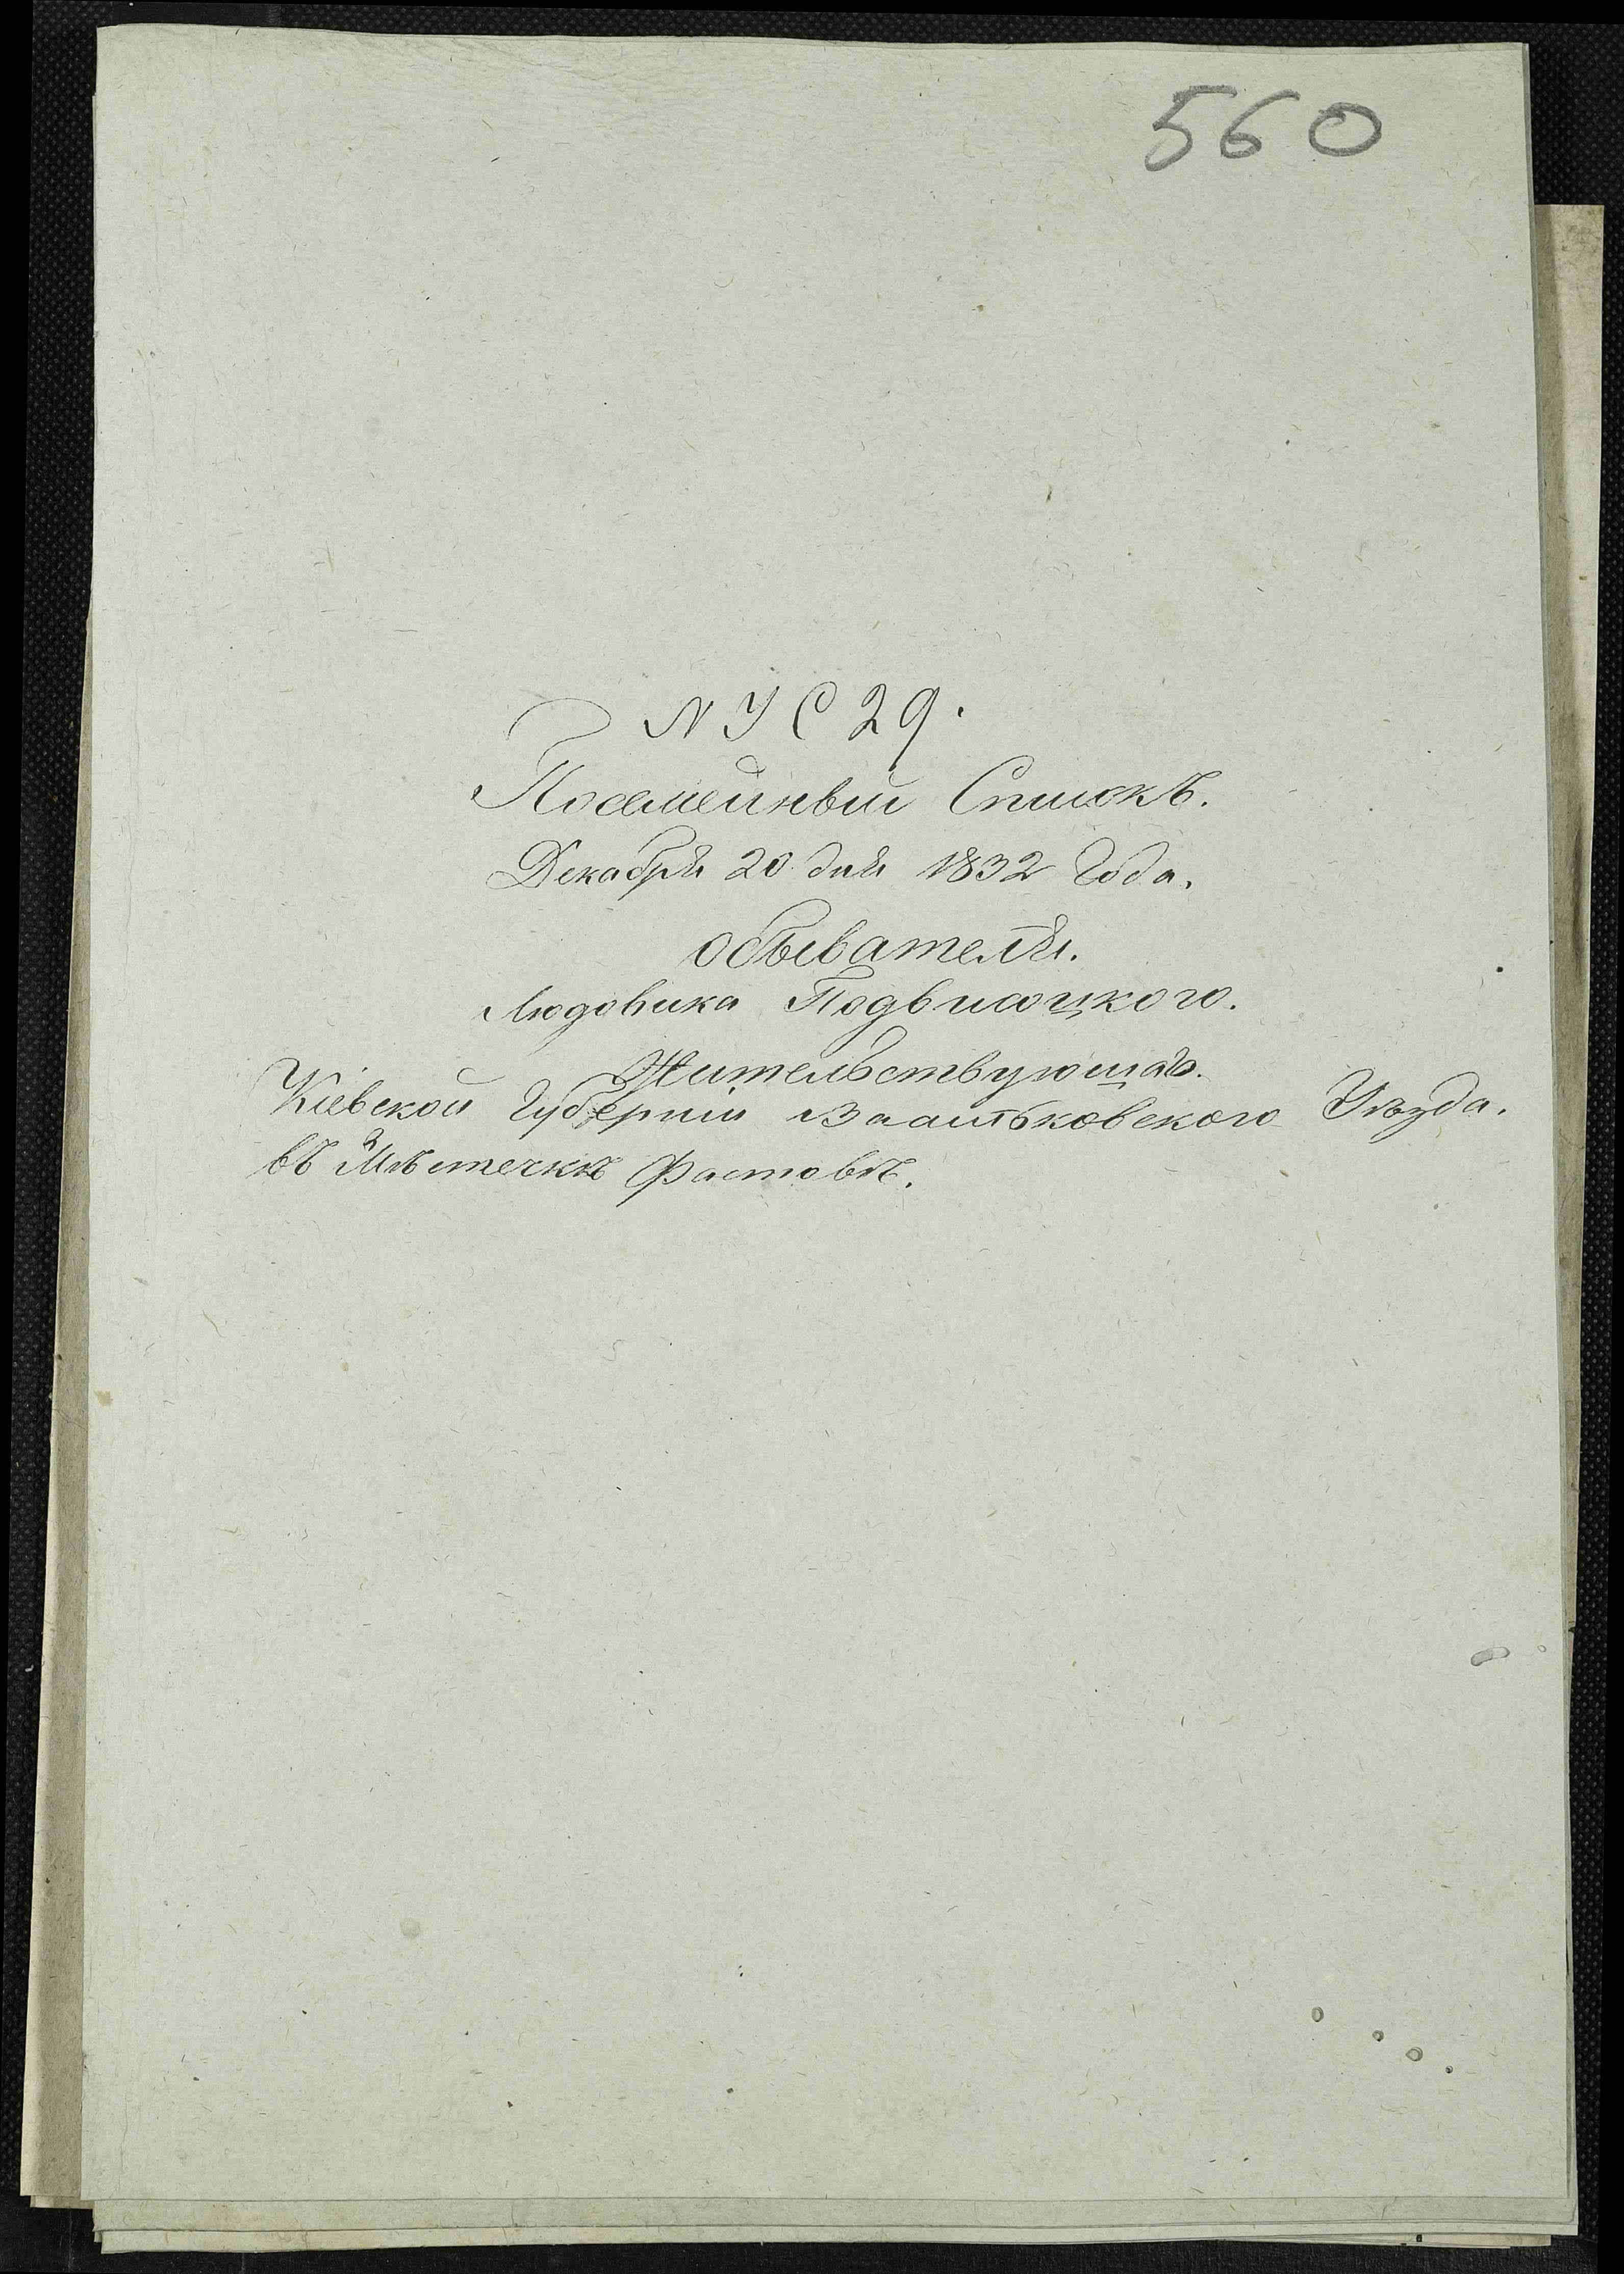 560
N У С 29.
Посемейный Списокъ.
Декабря 20 дня 1832 Года.
Обывателя.
Людовика Подвысоцкого.
Жительствующаго.
Кіевской Губерніи Васильковского Уѣзда.
въ Мѣстечкѣ Фастовѣ.